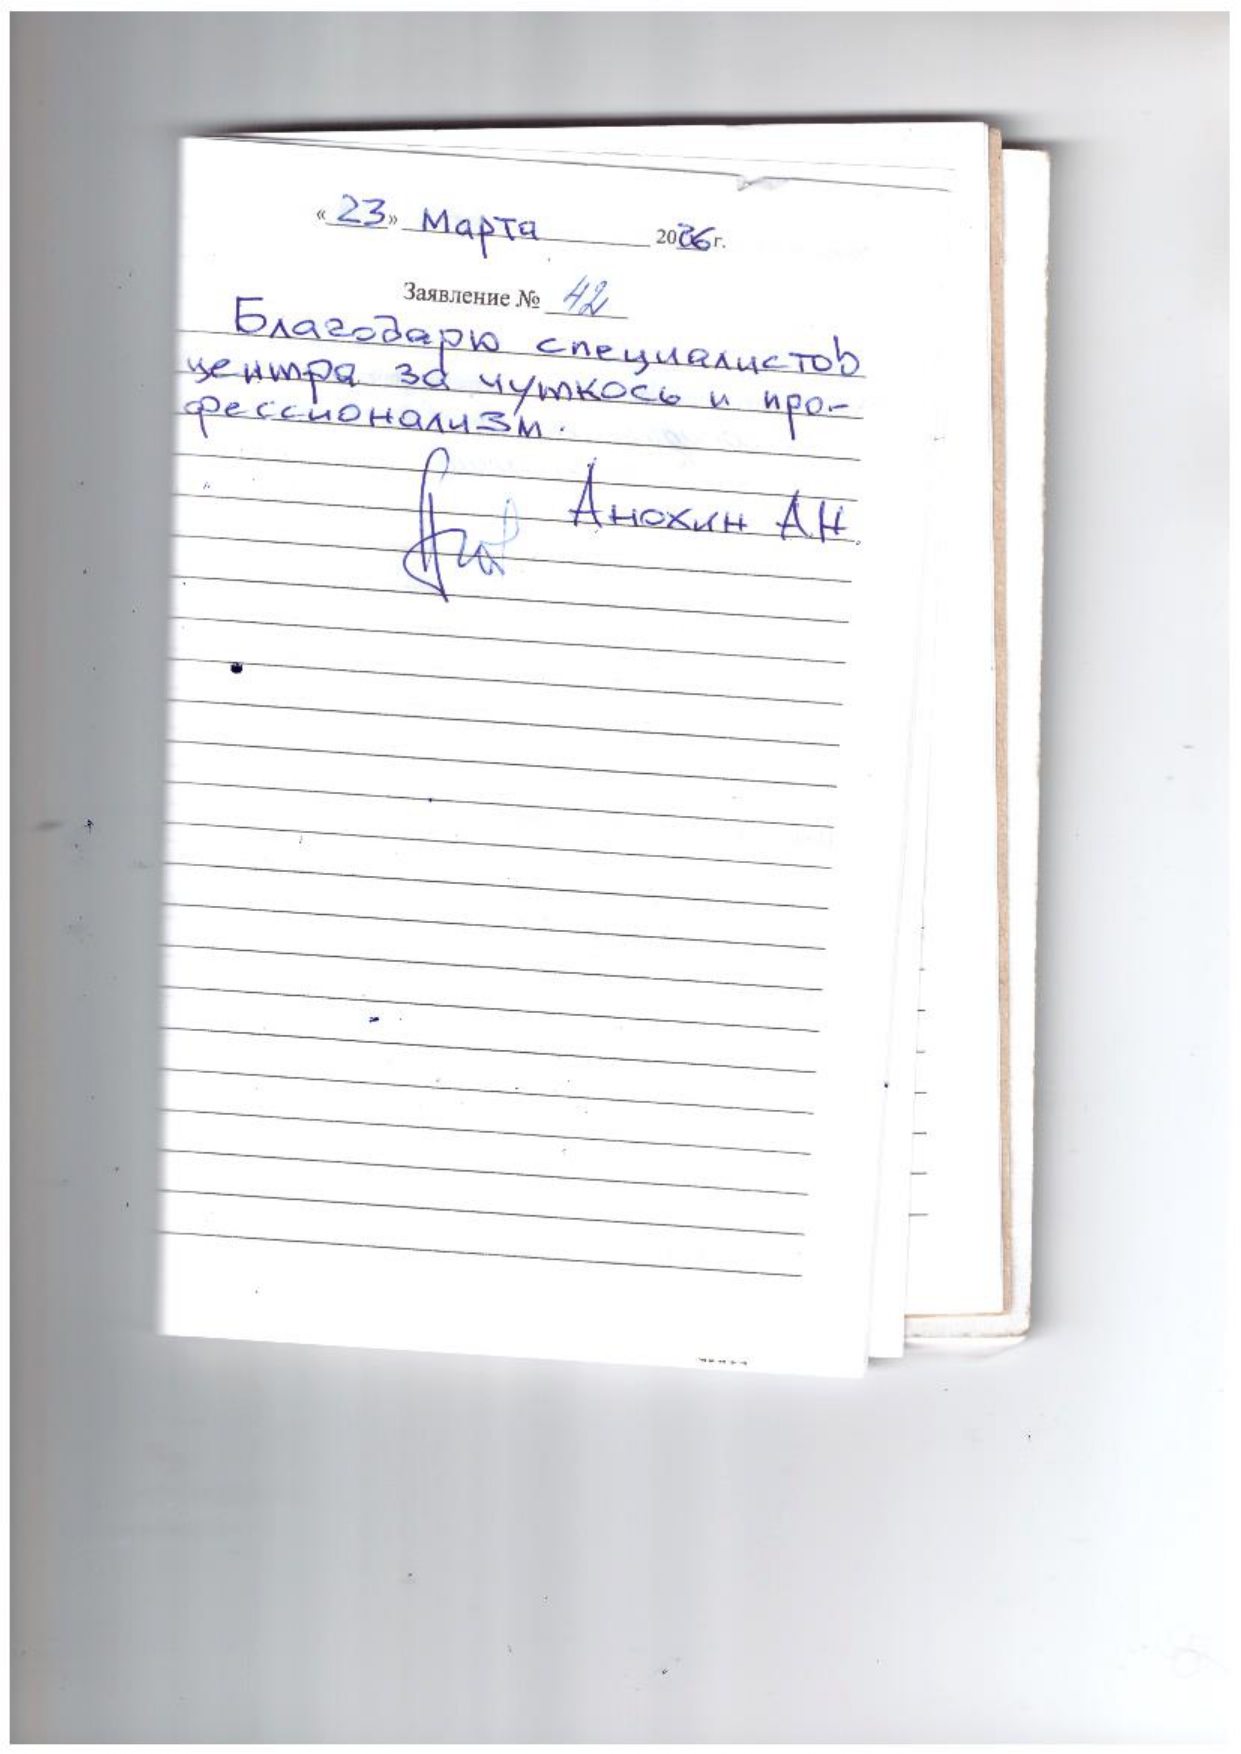 «23» Марта 2016г.
Заявление № 42
Благодарю специалистов
центра за чуткось и про-
фессионализм.
Анохин АН.